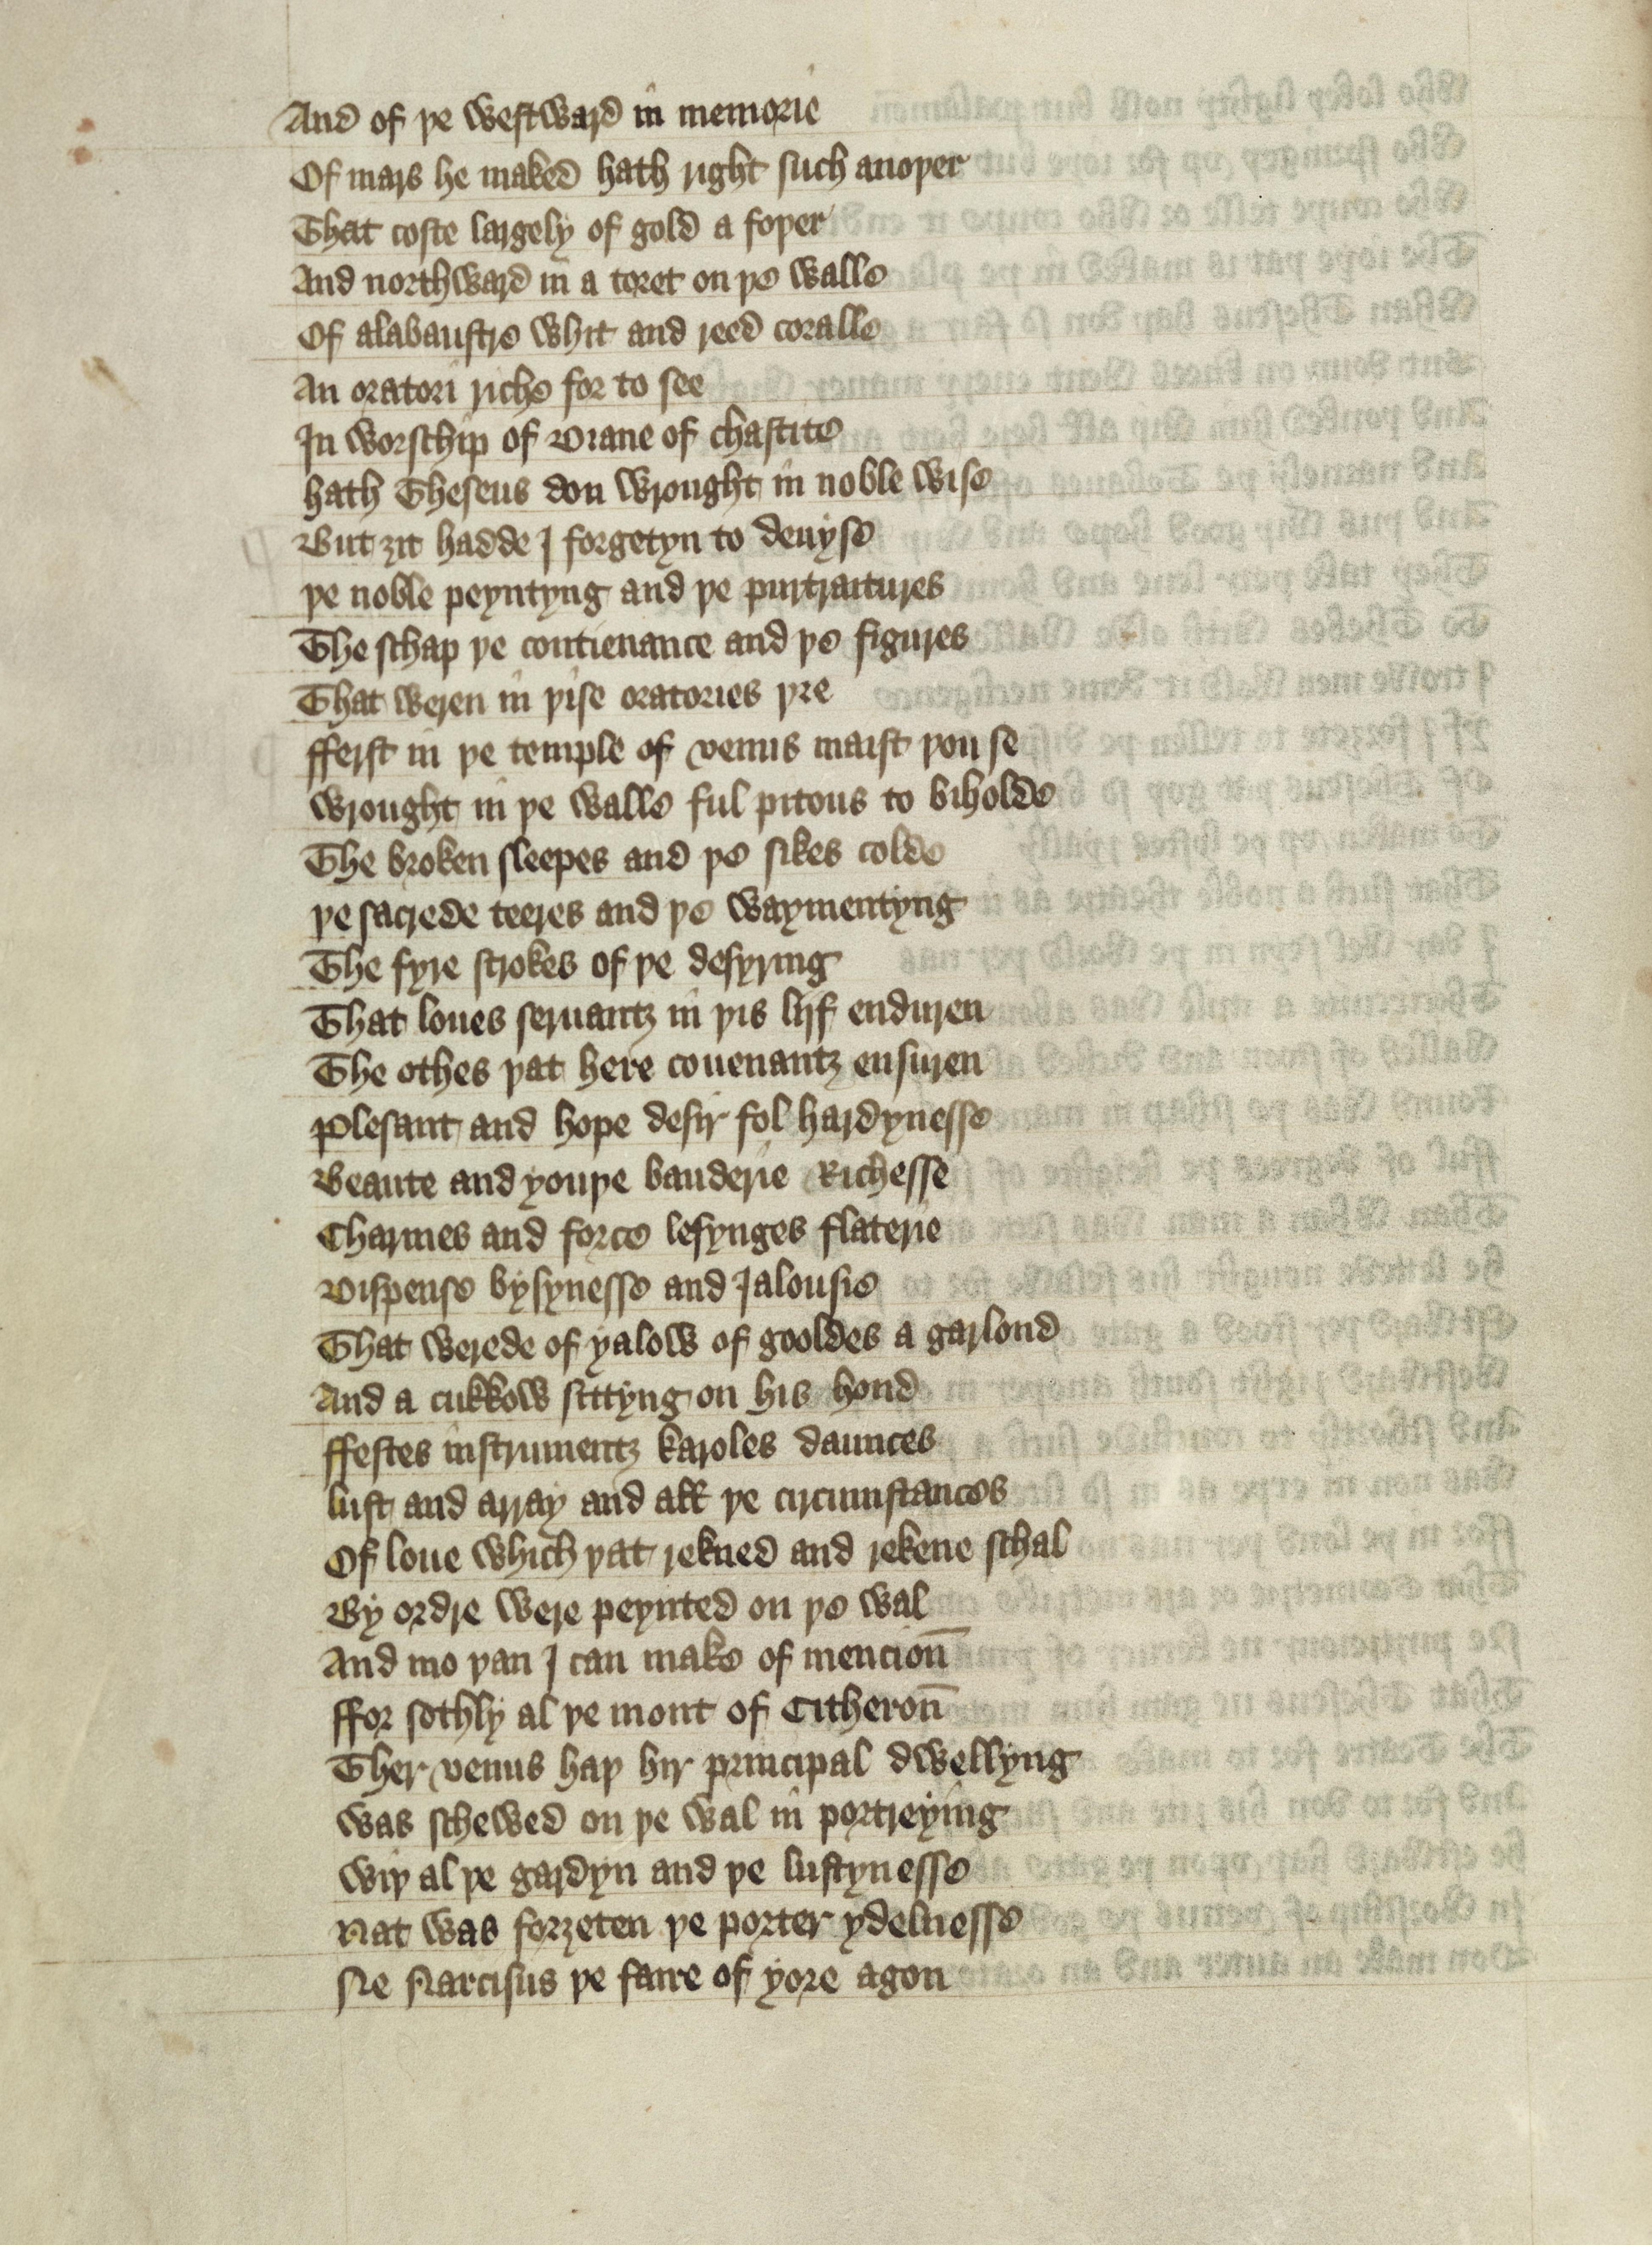 And of þe westward in memorie
Of mars he maked hath right such anoþer
That coste largely of gold a foþer
And northward in a toret on þe walle
Of alabaustre whit and reed coralle
An oratori riche for to see
In worschip of Diane of chastite
hath Theseus don wrought in noble wise
But ȝit hadde I forgetyn to deuyse
þe noble peyntyng and þe purtraitures
The schap þe contienance and þe figures
That weren in þise oratories þre
fferst in þe temple of venus maist þou se
wrought in þe walle ful pitous to biholde
The broken sleepes and þe sikes colde
þe sacrede teeres and þe waymentyng
The fyre strokes of þe desyring
That loues seruantz in þis lijf enduren
The othes þat here couenantz ensuren
Plesant and hope desir fol hardynesse
Beaute and youþe bauderie Richesse
Charmes and force lesynges flaterie
Dispense bysynesse and Jalousie
That werede of yalow of gooldes a garlond
And a cukkow sittyng on his hond
ffestes instrumentz karoles daunces
lust and array and all þe circumstances
Of loue which þat rekned and rekene schal
By ordre were peynted on þe wal
And mo þan I can make of mencion̄
ffor sothly al þe mont of Citheron̄
Ther venus haþ hir principal dwellyng
was schewed on þe wal in portreying
wiþ al þe gardyn and þe lustynesse
Nat was forȝeten þe porter ydelnesse
Ne Narcisus þe faire of yore agon